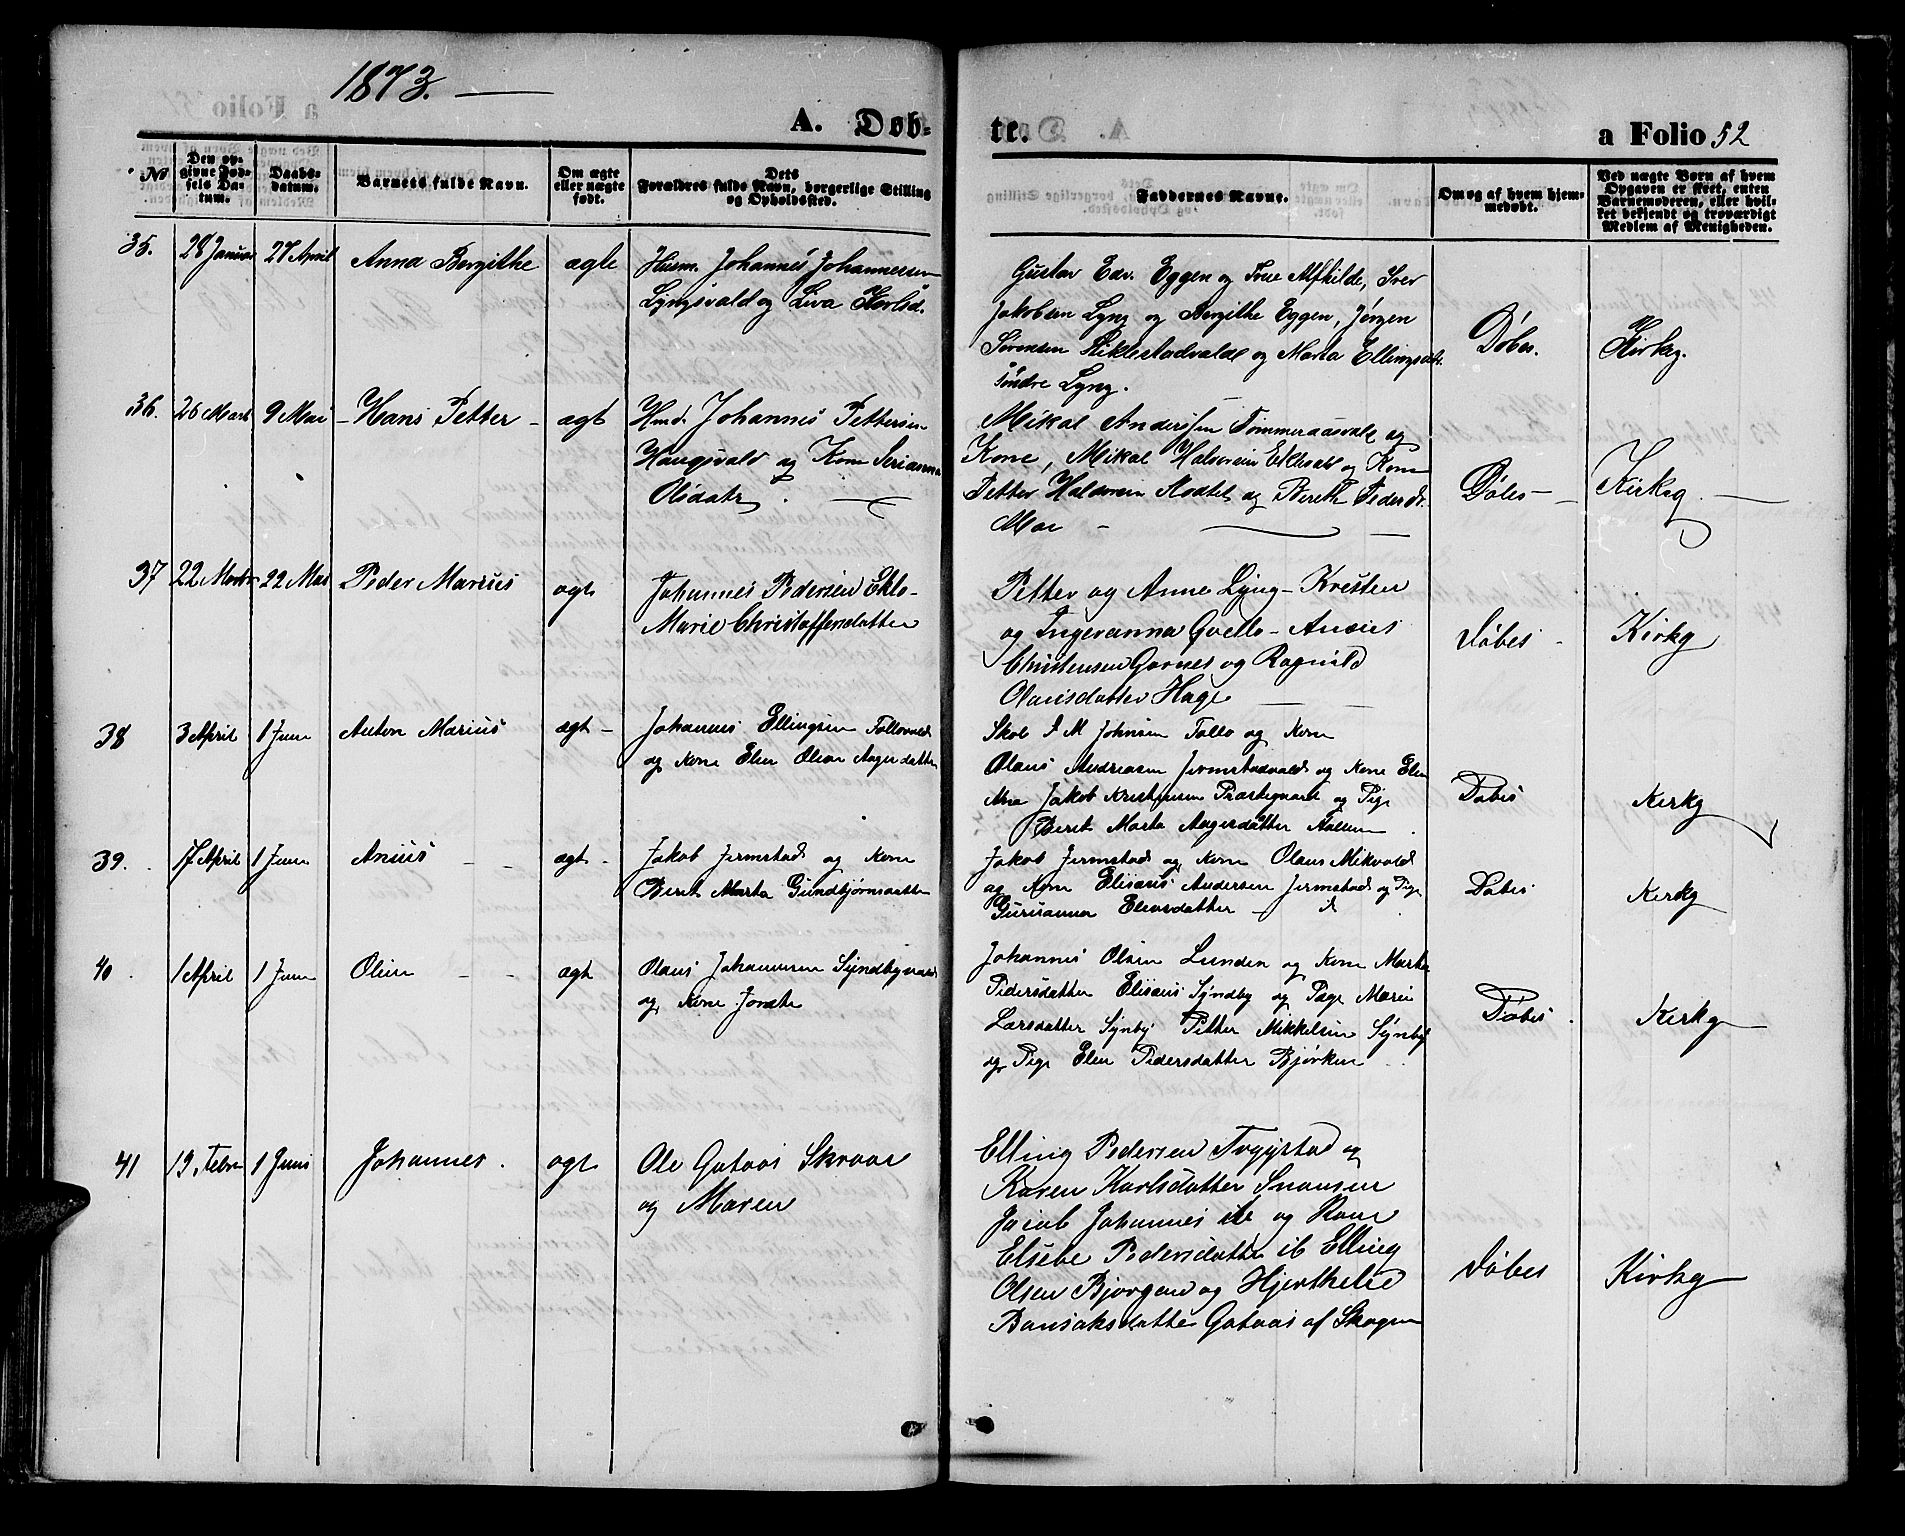 1873.
A. Døb-
te.
a Folio 52
No
Den op-
givne Fød-
sels Da-
tum.
Daabs-
datum.
Barnets fulde Navn.
Om ægte
eller uægte
født.
Dets
Forældres fulde Navn, borgerlige Stilling
og Opholdssted.
Faddernes Navne.
Om og af hvem hjem-
medøbt.
Ved uægte Børn af hvem
Opgaven er skeet, enten
Barnemoderen, eller hvil-
ket bekjendt og troværdigt
Medlem af Menigheden.
35. 28 Januar 27 April Anna Bergithe ægte
Husm. Johannes Johannessen
Lyngsvald og Liva Karlsd.
Gustav Edv. Eggen og Frue Alfhilde, Iver
Jakobsen Lyng og Bergithe Eggen, Jørgen
Sørensen Stiklestadvald og Marta Ellingsdt.
søndre Lyng.
Døbes. Kirkeg.
36. 26 Marts 9 Mai - Hans Petter - ægt
Hmd. Johannes Pettersen
Haugsvald og Kone Serianna
Olsdatr.
Mikal Anderssen Tømmeraasvald og
Kone, Mikal Halvorsen Eklesvald og Kone
Petter Haldorsen og Bereth Pedersdt.
Moe
Døbes - Kirkeg.
37 22 Marts 22 Mai Peder Marius ægt
Johannes Pedersen Eklo-
Marie Christoffersdatter
Petter og Anne Lyng - Kresten
og Ingeranna Qvello - Ansius
Christensen Garnes og Ragnild
Olausdatter Hage
Døbes - Kirkg
38 3 April 1 Juni Anton Marius ægt -
Johannes Ellingsen Follovald
og Kone Elen Oline Aagesdatter
Skol I M Johnsen Follo og Kone
Olaus Andreasen Jermstadvald og Kone Elen
Ana Jakob Kristjansen Præstegaard og Pige
Berit Marta Aagesdatter
Døbes Kirkg
39. 17 April 1 Juni Anius - - ægt -
Jakob Jermstad og Kone
Berit Marta Gundbjørnsdatter
Jakob Jermstad og Kone Olaus Mikvold
og Kone Elisæus Andersen Jermstad og Pige
Gurianna Elensdatter - d
Døbes Kirkg
40. 1 April 1 Juni Oline - - ægt
Olaus Johannesen Syndbyvald
og Kone Jonette
Johannes Olsen Lunden og Kone Marta
Pedersdatter Elisæus Syndby og Pige Marie
Larsdatter Synby Petter Mikkelsen Synby
og Pige Elen Pedersdatter Bjørken
Døbes. Kirkg
41 19. Febr 1 Juni Johannes. ægt
Ole Gataas Skraae
og Maren
Elling Pedersen Tryggstad og
Karen Karlsdatter Snausen
Jacob Johannes ib og Kone
Elsebe Pedersdatter ib Elling
Olsen Bjørgen og Hjerthelie
Bansaksdatter Gataas af Skogn
Døbes Kirkg